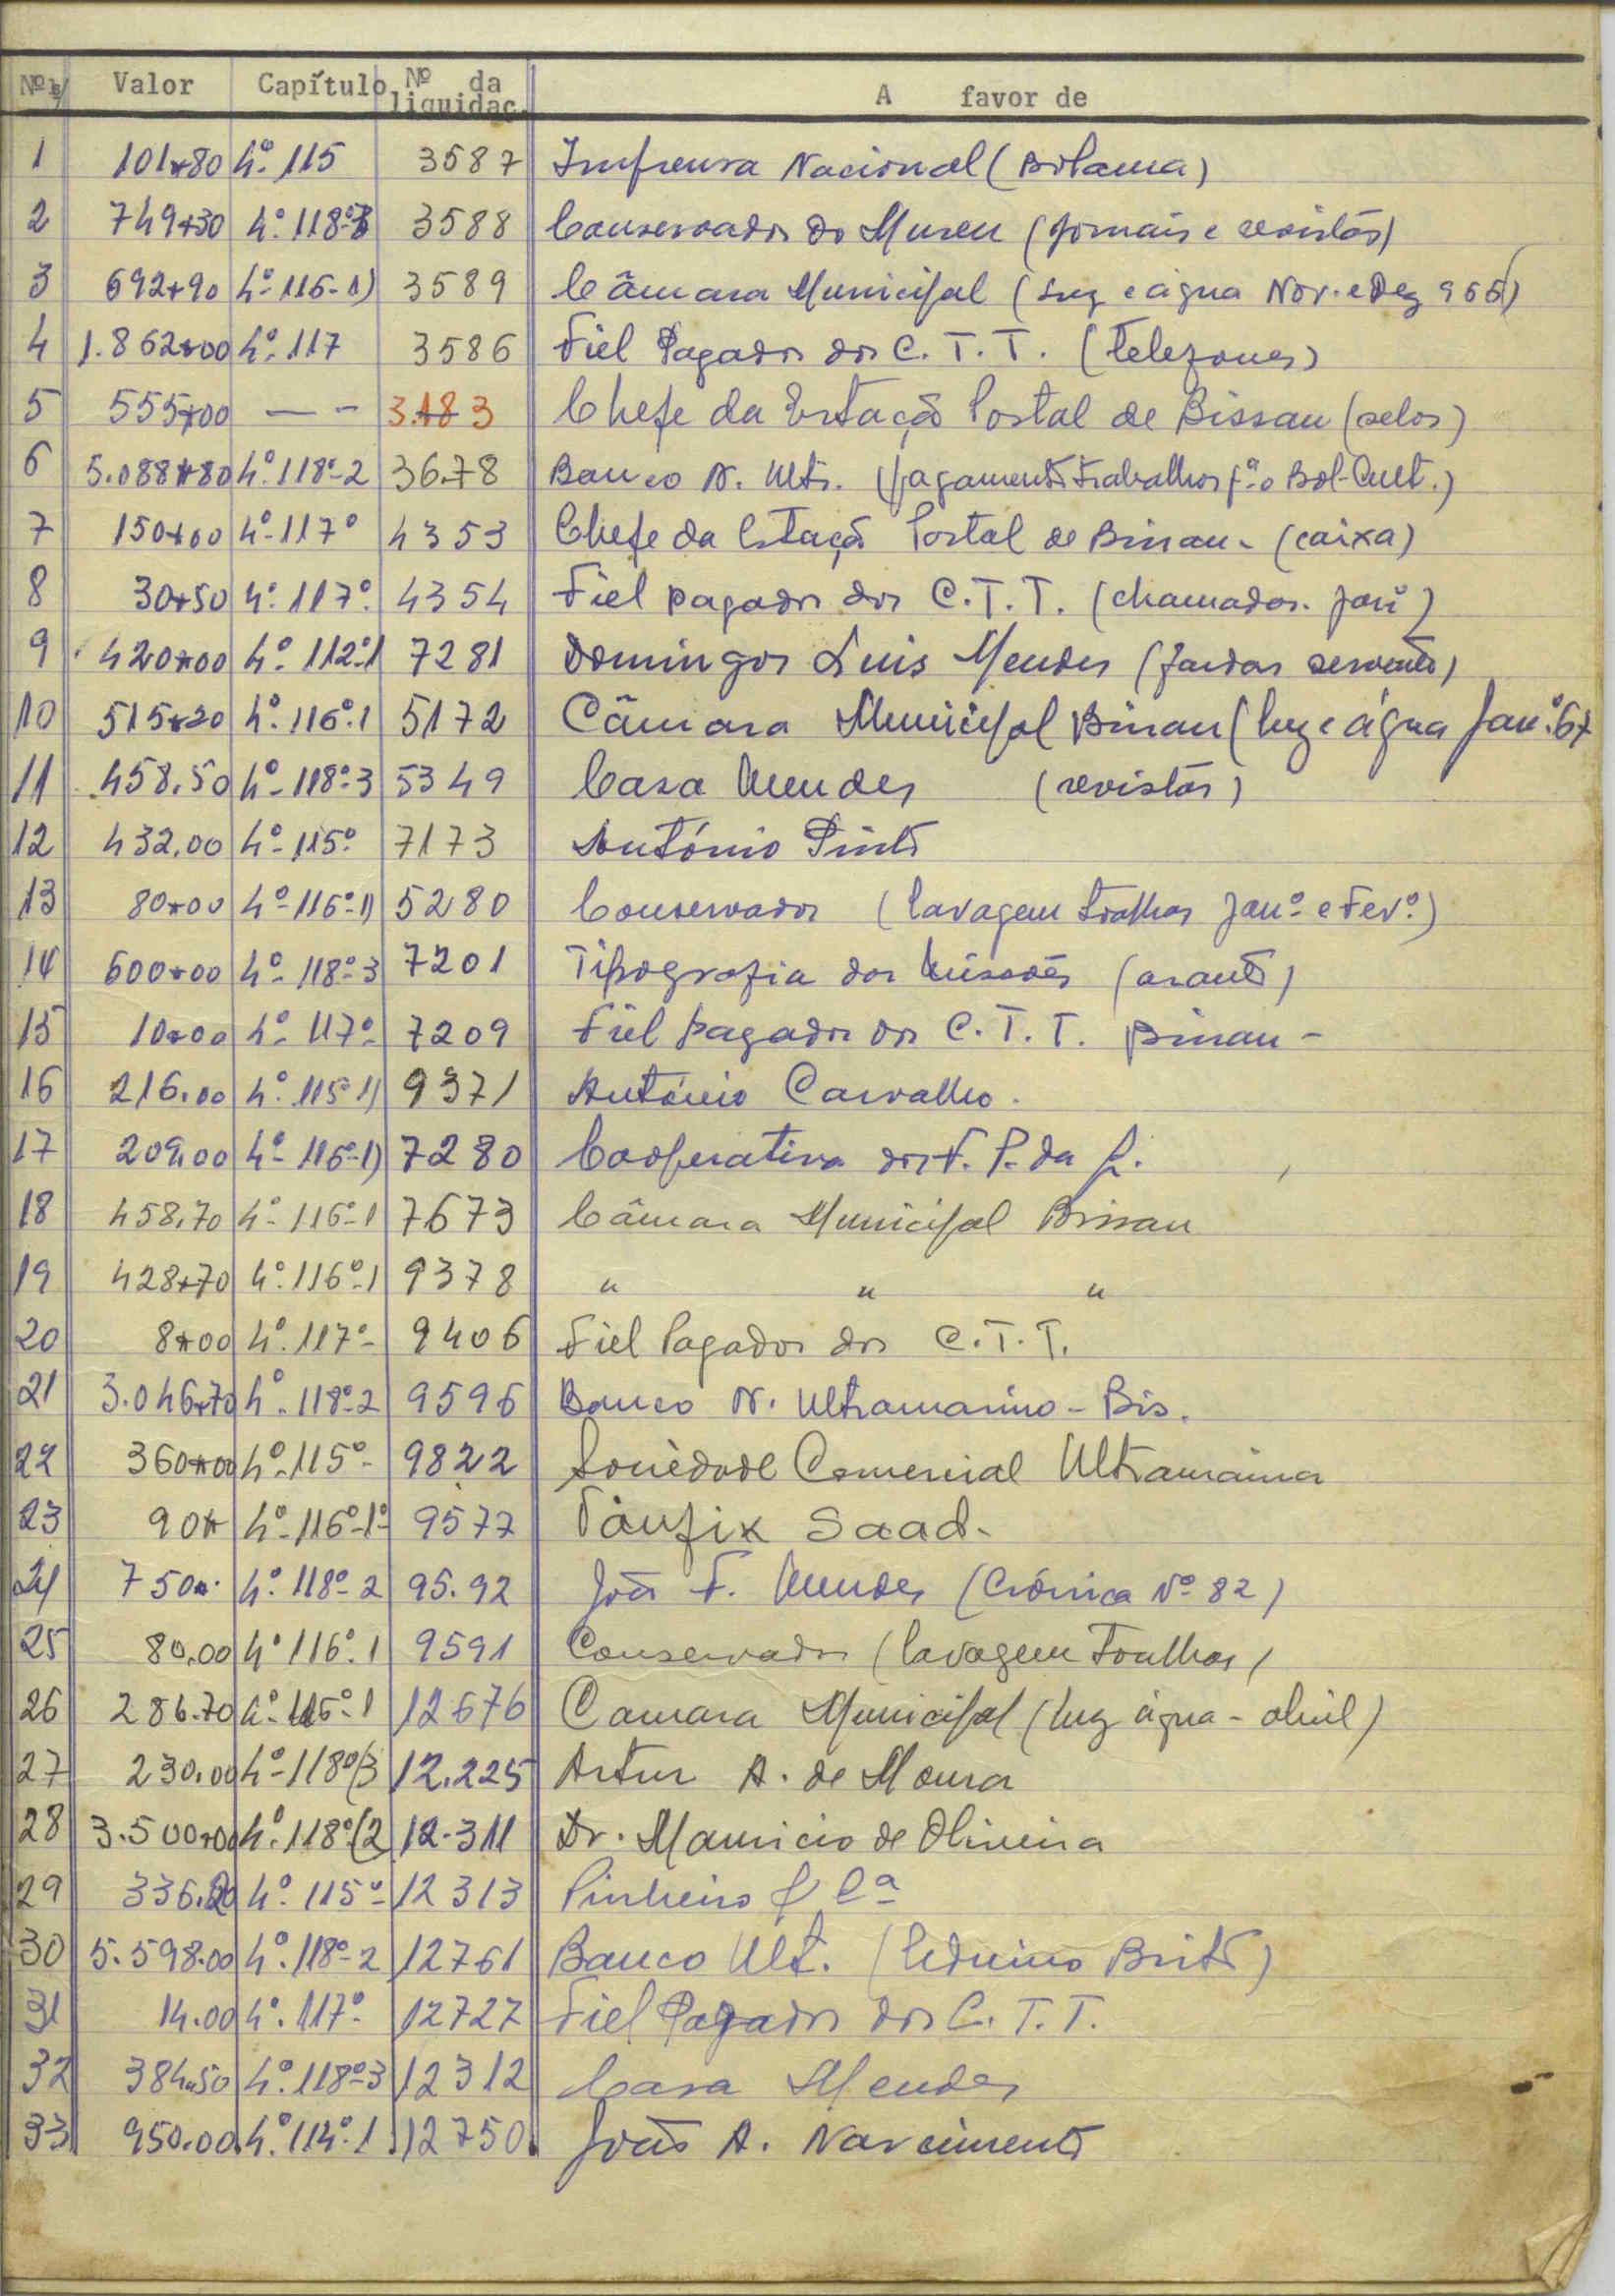 Nºs/ Valor Capítulo Nº da liquidaç. A favor de
1 101$80 4º-115 3587 Imprensa Nacional (Bolama)
2 749$30 4º-118º-3 3588 Conservador do Museu (jornais e revistas)
3 692$90 4º-116-1) 3589 Câmara Municipal (luz e água Nov. e Dez 966)
4 1.862$00 4º-117 3586 Fiel Pagador dos C.T.T. (telefones)
5 555$00 — - 3.183 Chefe da Estação Postal de Bissau (selos)
6 5.088$80 4º-118º-2 3678 Banco N. Ultr. (pagamento trabalhos pª o Bol-Cult.)
7 150$00 4º-117º 4353 Chefe da Estação Postal de Bissau - (caixa)
8 30$50 4º-117º- 4354 Fiel pagador dos C.T.T. (chamadas. janº)
9 420$00 4º-112º-1 7281 Domingos Luis Mendes (fardas servente)
10 515$20 4º-116º-1 5172 Câmara Municipal Bissau (luz e água Janº.67
11 458.50 4º-118º-3 5349 Casa Mendes (revistas)
12 432.00 4º-115º 7173 António Pinto
13 80$00 4º-116º-1) 5280 Conservador (lavagem toalhas Janº e Fevº)
14 600$00 4º-118º-3 7201 Tipografia das Missões (arauto)
15 10$00 4º-117º- 7209 Fiel pagador dos C.T.T. Bissau -
16 216.00 4º-115º-1) 9371 António Carvalho.
17 209.00 4º-116º-1) 7280 Cooperativa dos F. P. da G.
18 458.70 4º-116º-1 7673 Câmara Municipal Bissau
19 428$70 4º-116º-1 9378 " " "
20 8$00 4º-117º- 9406 Fiel Pagador dos C.T.T.
21 3.046$70 4º-118º-2 9596 Banco N. Ultramarino - Bis.
22 360$00 4º-115º- 9822 Sociedade Comercial Ultramarina
23 90$ 4º-116º-1º- 9577 Taufix Saad-
24 750$. 4º-118º-2 95.92 João F. Mendes (Crónica Nº 82)
25 80.00 4º 116º-1 9591 Conservador (lavagem Toalhas)
26 286.70 4º-116º-1 12676 Camara Municipal (luz água - abril)
27 230.00 4º-118º/3 12.225 Artur A. de Moura
28 3.500$00 4º-118º(2 12-311 Dr. Mauricio de Oliveira
29 336.20 4º-115º- 12313 Pinheiro & Cª
30 5.598.00 4º-118º-2 12761 Banco Ult. (Eduino Brito)
31 14.00 4º-117º- 12727 Fiel Pagador dos C.T.T.
32 384.50 4º-118º-3 12312 Casa Mendes
33 950.00 4º-114º-1 12750 João A. Nascimento